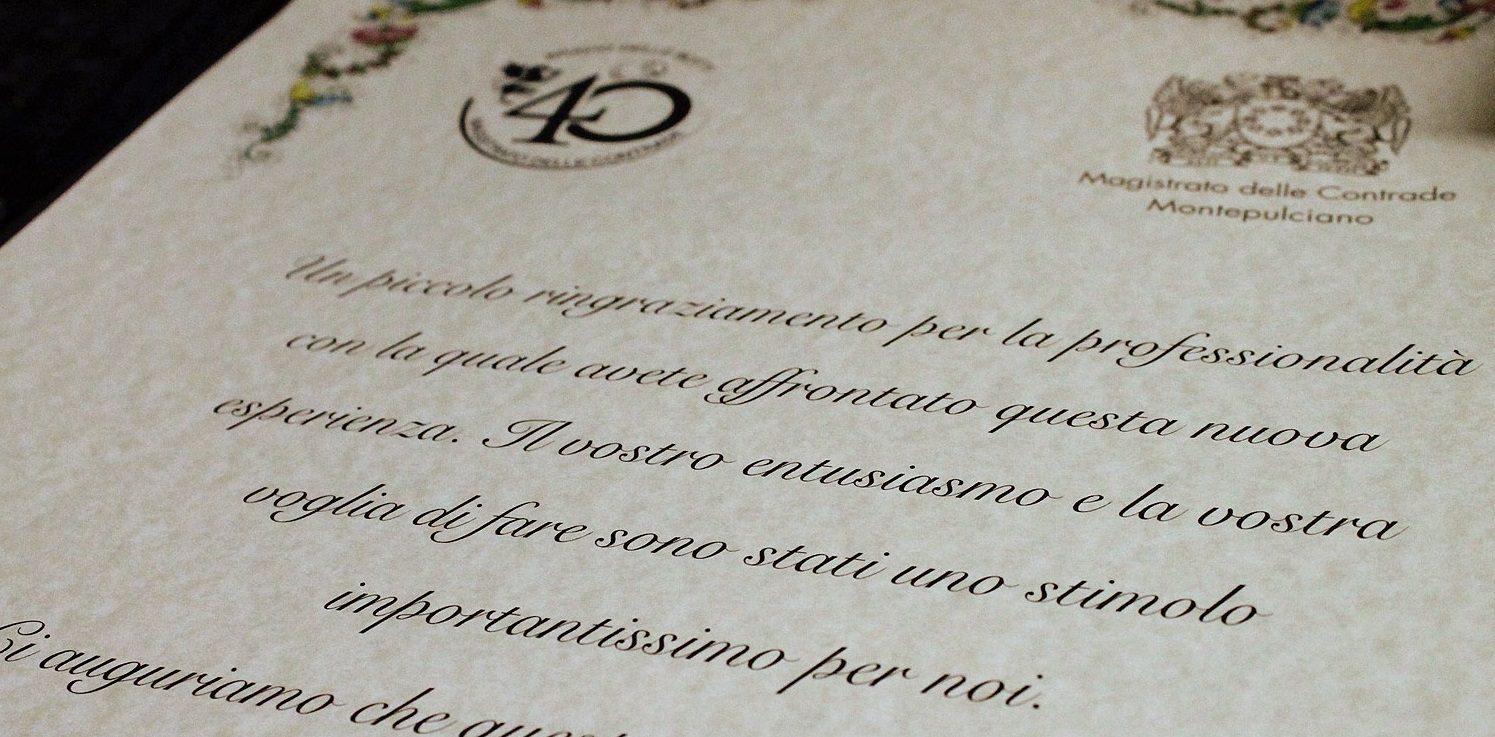 40
DELLE
Magistrato delle Contrade
Montepulciano
Un piccolo ringraziamento per la professionalità
con la quale avete affrontato questa nuova
esperienza. Il vostro entusiasmo e la vostra
voglia di fare sono stati uno stimolo
importantissimo per noi.
Ci auguriamo che